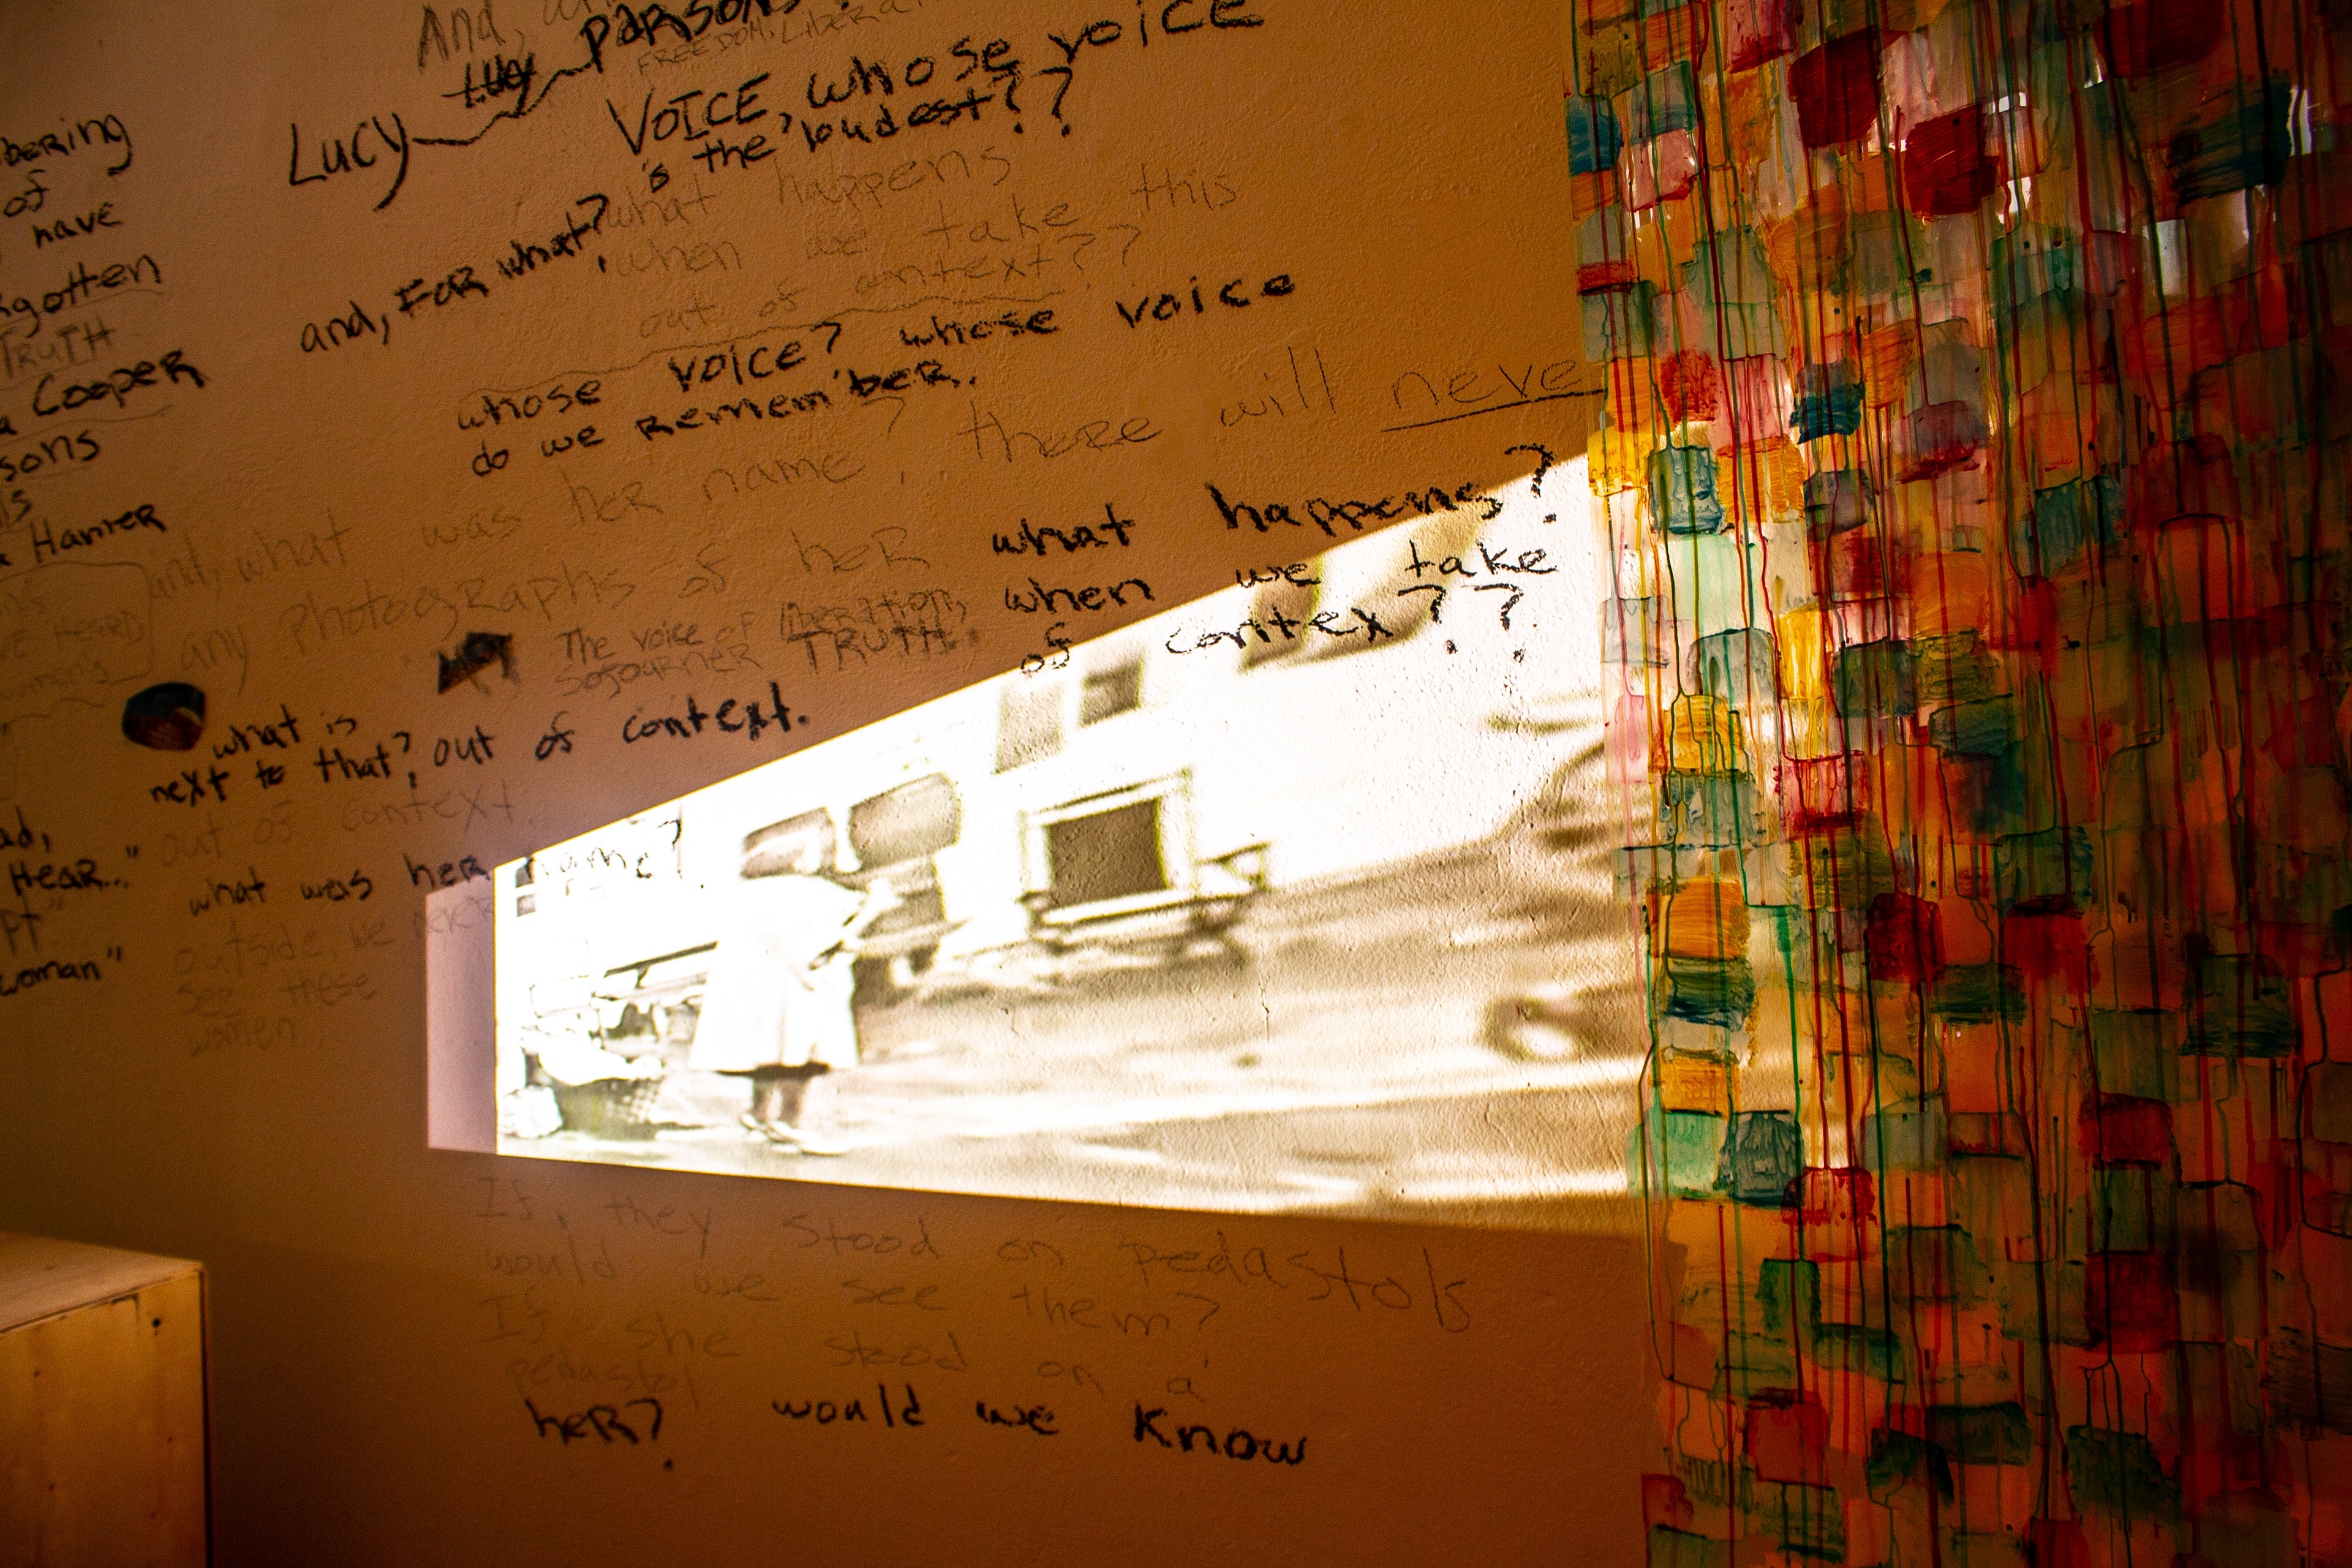 And,
Lucy PARSONS
FREEDOM, Liberat
VOICE, whose voice
is the loudest??
bering
of
have
gotten
TRUTH
Cooper
sons
Hamer
and, FOR what?
what happens
when we take this
out of context??
whose voice? whose voice
do we remember.
and, what was her name? there will neve
any photographs of her
what happens?
when we take
of contex??
The voice of liberation,
SOJOURNER TRUTH.
NOT
VE HEARD
women's
what is
next to that?, out of context.
out of context.
ad,
HEAR..."
what was her name?
outside, we never
see these
women
woman"
If, they stood on pedastols
would we see them?
If she stood on a
pedastol
her? would we know